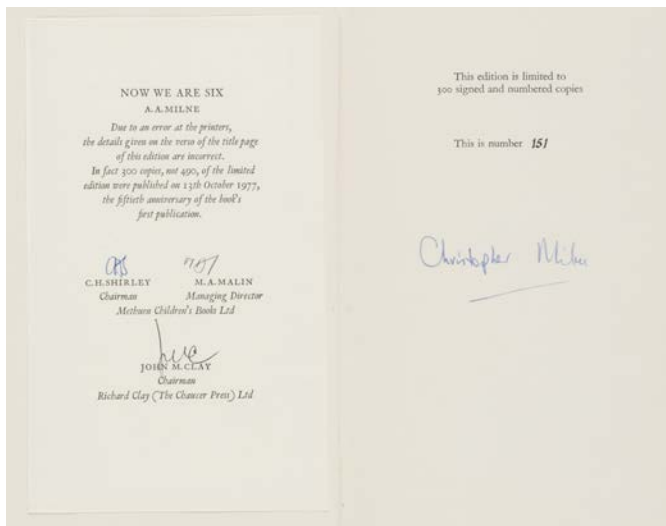 NOW WE ARE SIX
A.A.MILNE
Due to an error at the printers,
the details given on the verso of the title page
of this edition are incorrect.
In fact 300 copies, not 490, of the limited
edition were published on 13th October 1977,
the fiftieth anniversary of the book's
first publication.
C.H.SHIRLEY M.A.MALIN
Chairman Managing Director
Methuen Children's Books Ltd
JOHN M.CLAY
Chairman
Richard Clay (The Chaucer Press) Ltd
This edition is limited to
300 signed and numbered copies
This is number 151
Christopher Milne